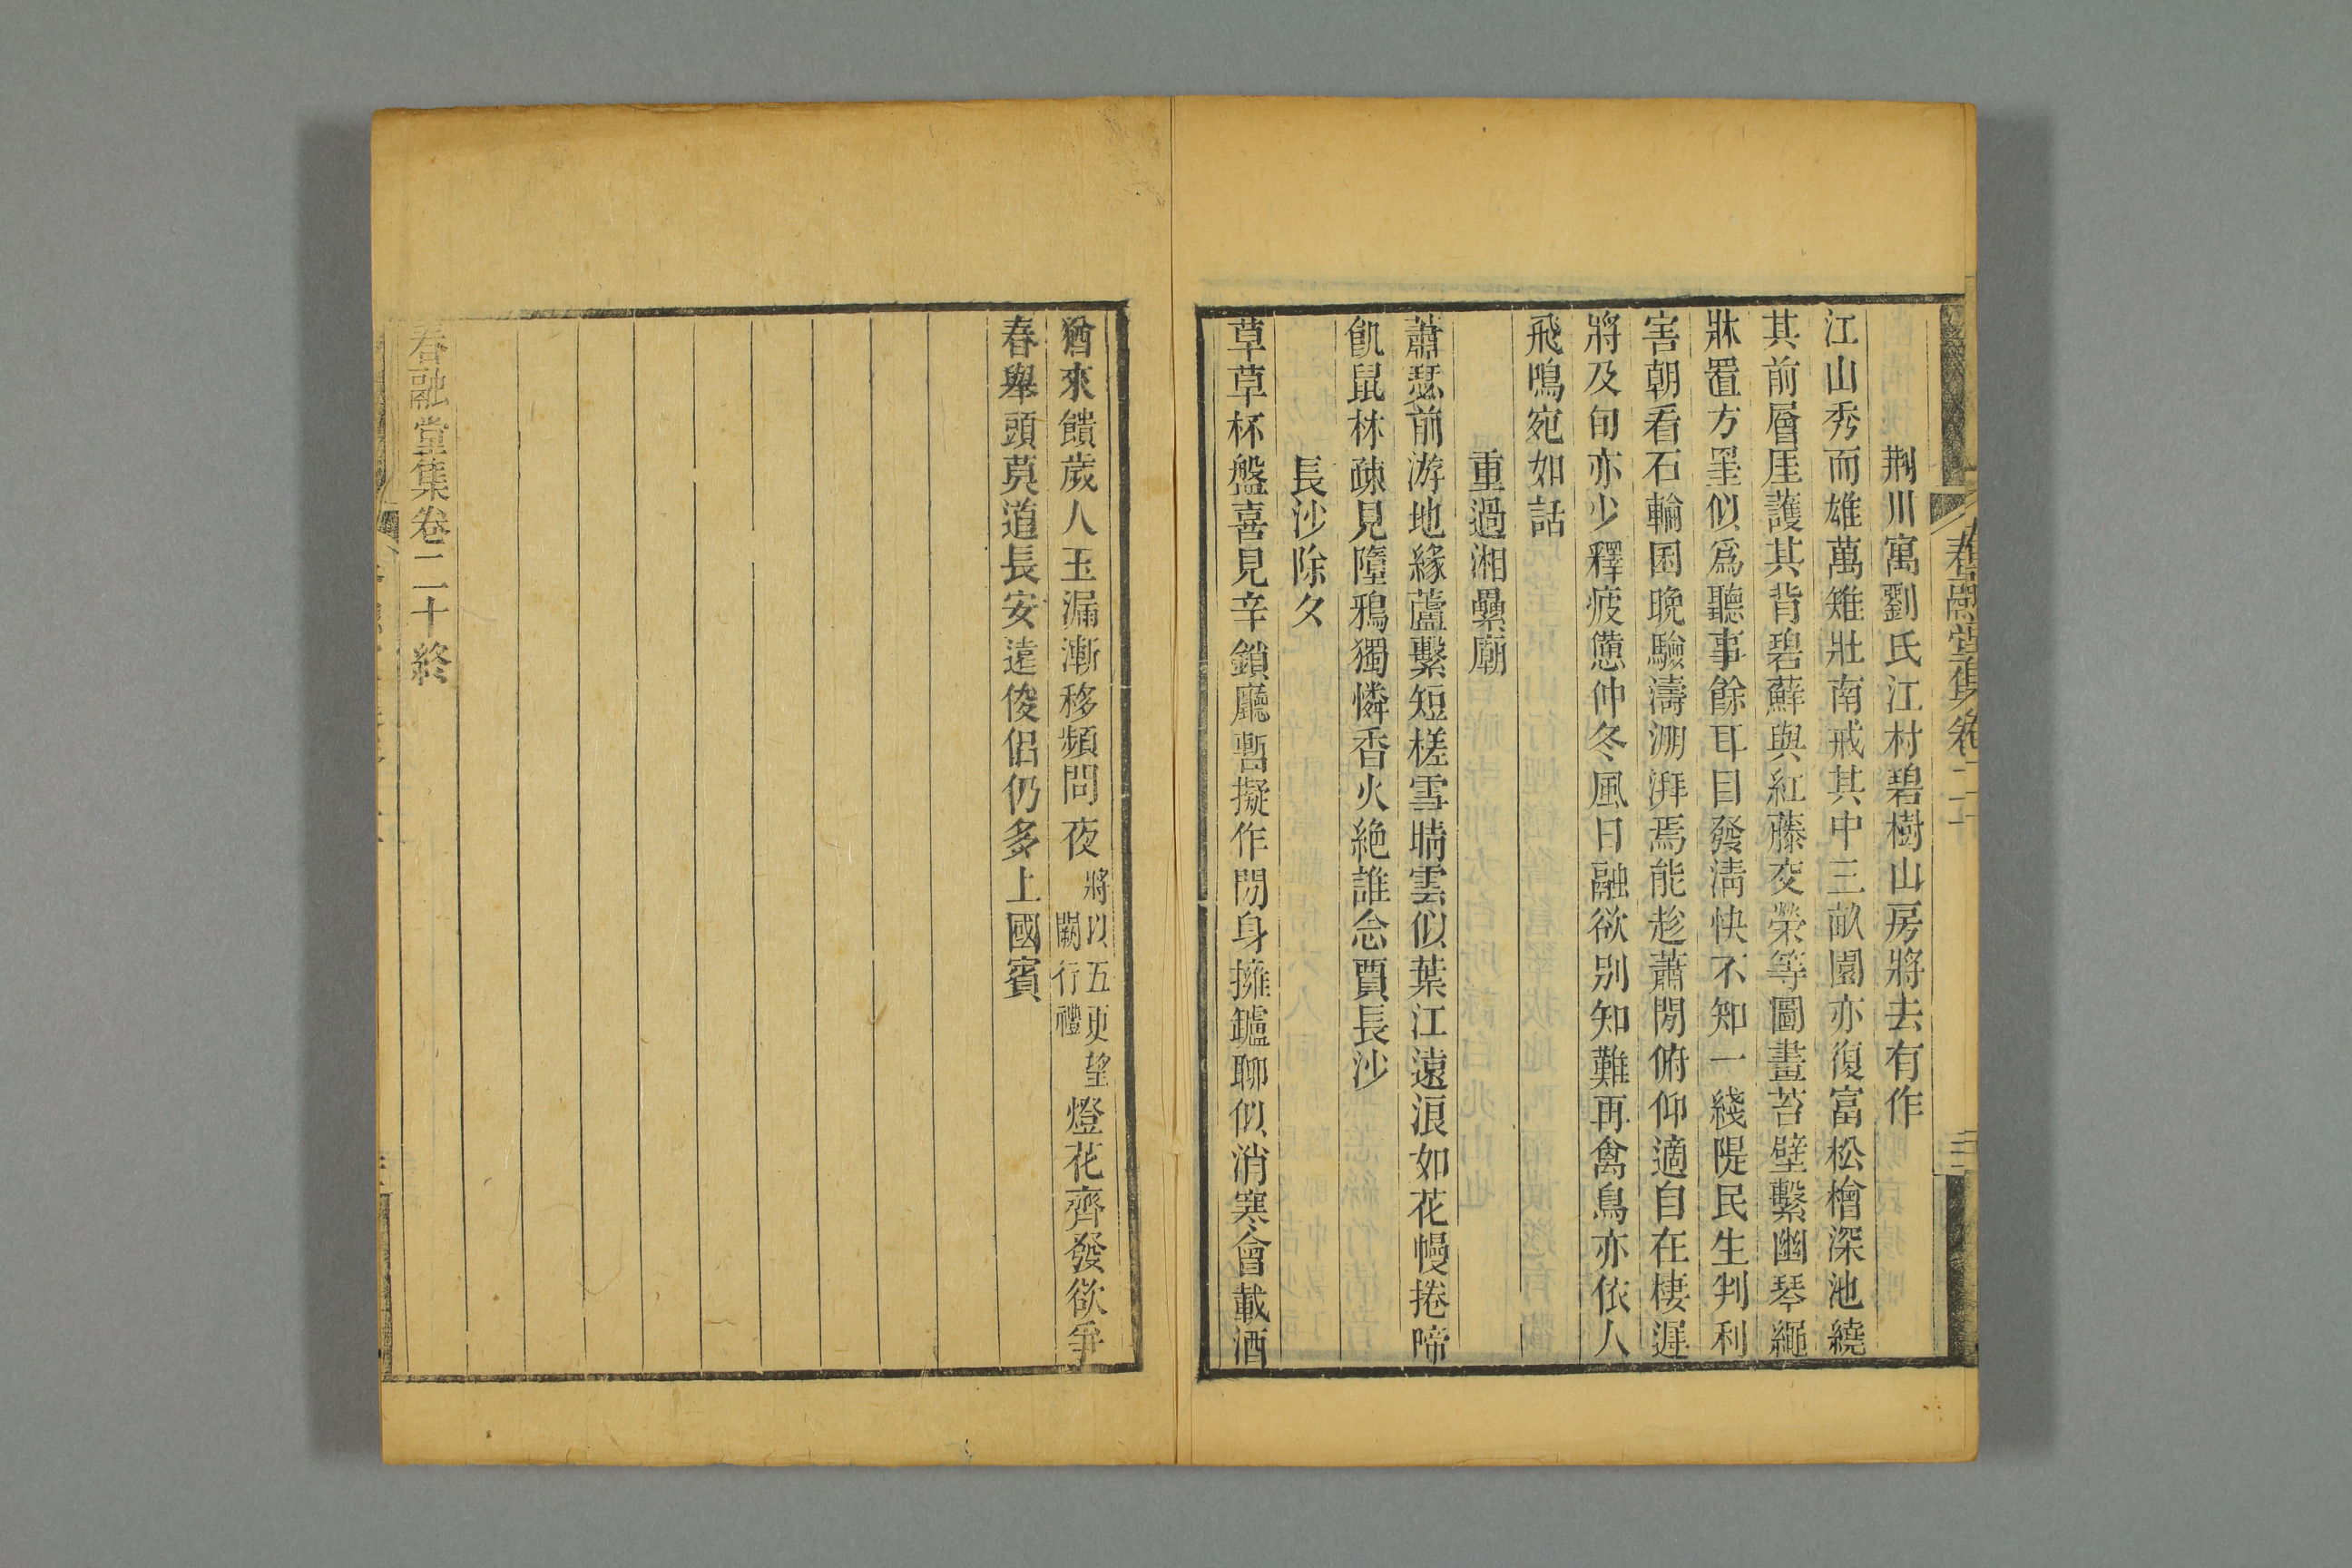 春融堂集卷二十
荆川寓劉氏江村碧樹山房將去有作
江山秀而雄萬雉壯南戒其中三畝園亦復富松檜深池繞
其前層厓護其背碧蘚與紅藤交榮等圖畫苔壁繫幽琴繩
牀置方罫似爲聽事餘耳目發淸快不知一綫隄民生判利
害朝看石輪囷晚驗濤淜湃焉能趁蕭閒俯仰適自在棲遲
將及旬亦少釋疲憊仲冬風日融欲别知難再禽鳥亦依人
飛鳴宛如話
重過湘纍廟
蕭瑟前游地緣蘆繫短槎雪晴雲似葉江遠浪如花幔捲啼
飢鼠林疎見墮鴉獨憐香火絶誰念賈長沙
長沙除夕
草草杯盤喜見辛鎖廳暫擬作閒身擁鑪聊似消寒會載酒
猶來饋歲人玉漏漸移頻問夜將以五更望
闕行禮燈花齊發欲爭
春舉頭莫道長安遠俊侣仍多上國賓
春融堂集卷二十終